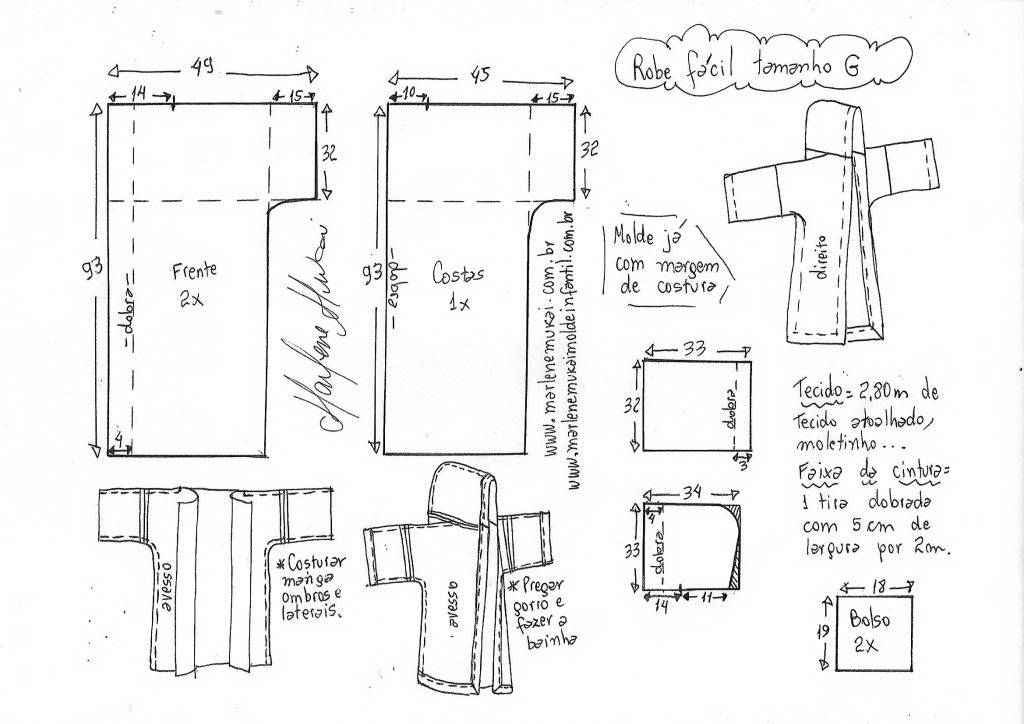 Robe fácil tamanho G
49
14
15
32
93
Frente
2x
dobra
4
45
10
15
32
93
dobra
Costas
1x
Marlene Mukai
www.marlenemukai.com.br
www.marlenemukaimoldeinfantil.com.br
Molde já
com margem
de costura
direito
33
32
dobra
3
34
4
33
dobra
14
11
Tecido = 2,80m de
Tecido atoalhado,
moletinho...
Faixa da cintura =
1 tira dobrada
com 5 cm de
largura por 2m.
18
19
Bolso
2x
avesso
* Costurar
manga
ombros e
laterais.
avesso
* Pregar
gorro e
fazer a
bainha